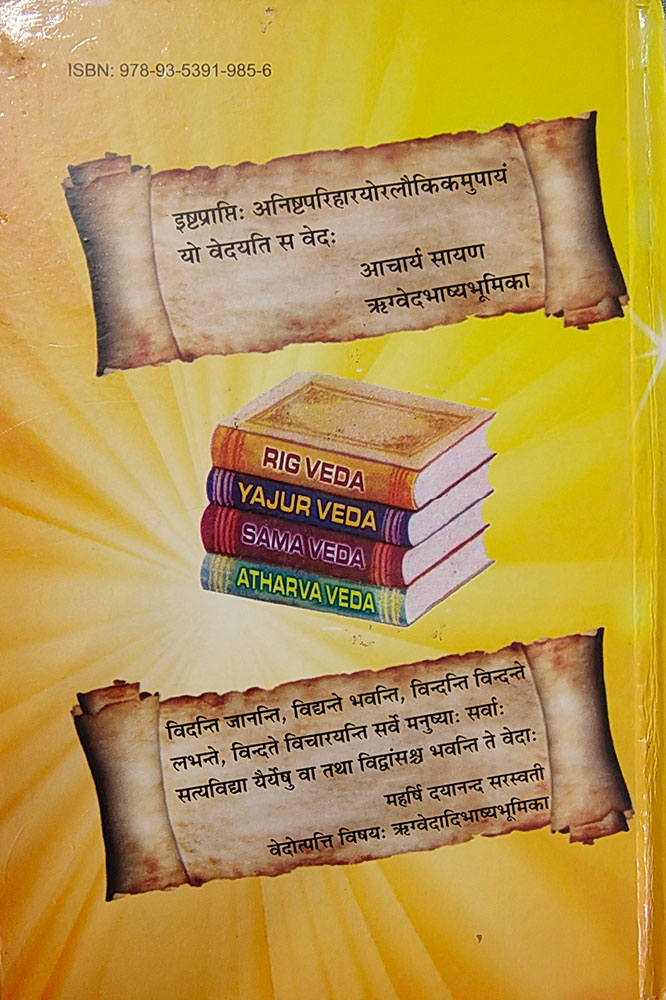 ISBN: 978-93-5391-985-6
इष्टप्राप्तिः अनिष्टपरिहारयोरलौकिकमुपायं
यो वेदयति स वेदः
आचार्य सायण
ऋग्वेदभाष्यभूमिका
RIG VEDA
YAJUR VEDA
SAMA VEDA
ATHARVA VEDA
विदन्ति जानन्ति, विद्यन्ते भवन्ति, विन्दन्ति विन्दन्ते
लभन्ते, विन्दते विचारयन्ति सर्वे मनुष्याः सर्वाः
सत्यविद्या यैर्येषु वा तथा विद्वांसश्च भवन्ति ते वेदाः
महर्षि दयानन्द सरस्वती
वेदोत्पत्ति विषयः ऋग्वेदादिभाष्यभूमिका